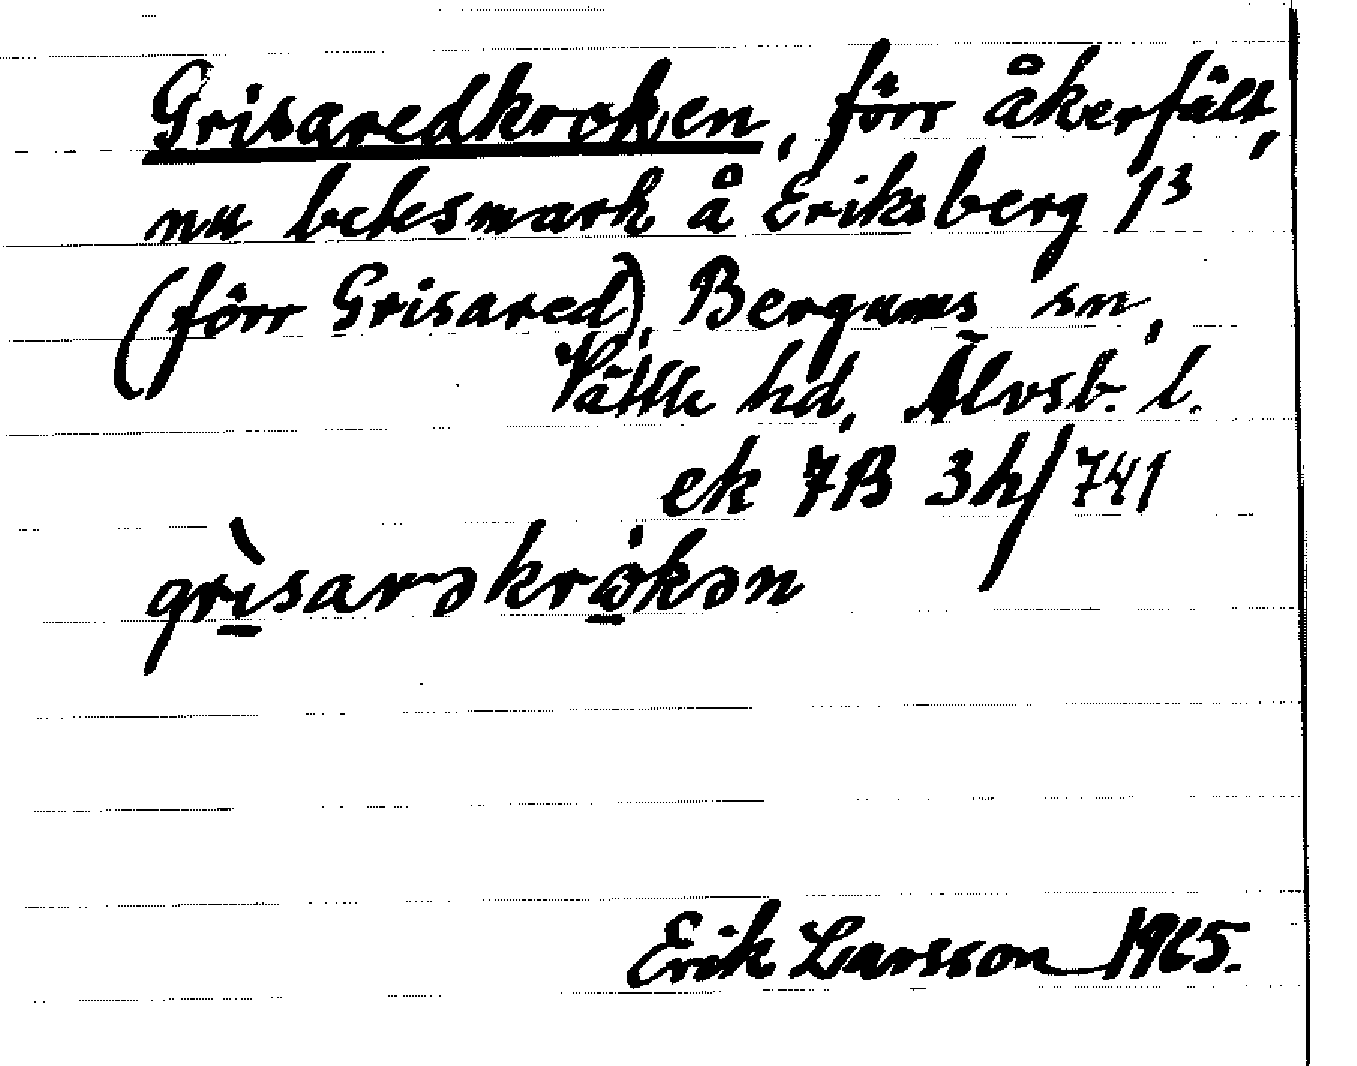 Grisaredkroken, förr åkerfält,
nu betesmark å Eriksberg 1³
(förr Grisared), Bergums sn,
Vättle hd, Älvsb. l.
ek 7B 3h/741
grìsarəkrɷ̀kən
Erik Larsson 1965.